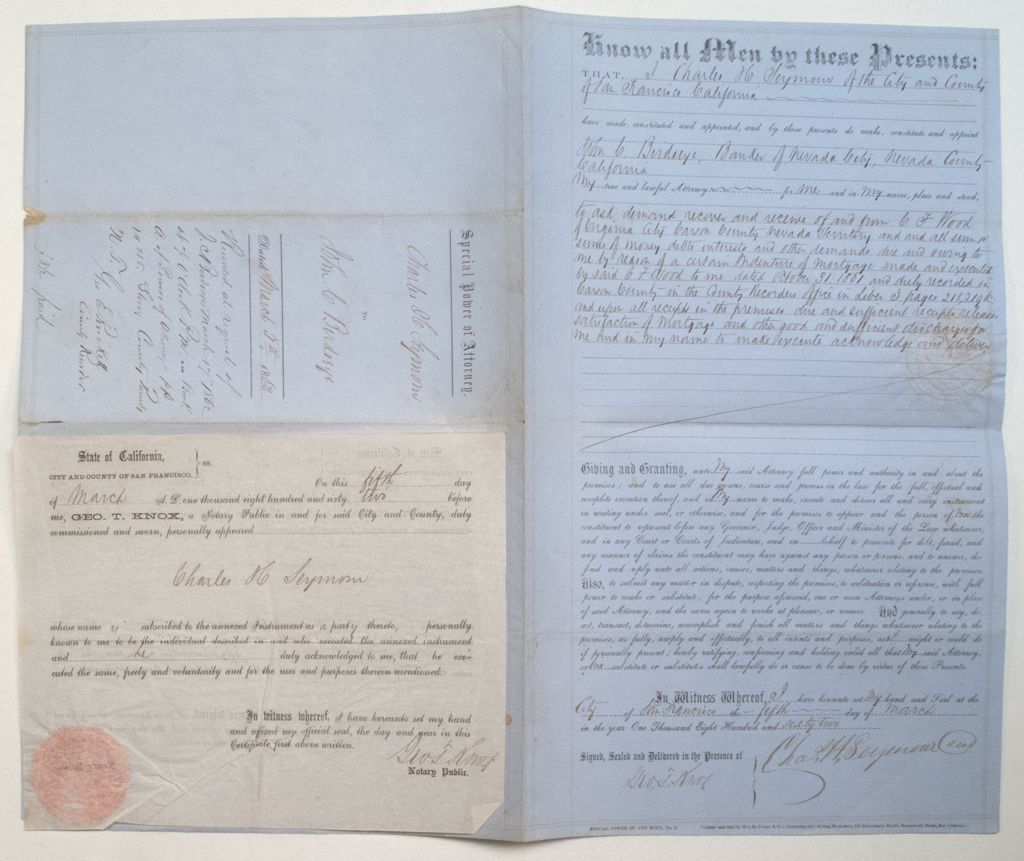 Know all Men by these Presents:
THAT I Charles H Seymour of the City and County
of San Francisco California
have made, constituted and appointed, and by these presents do make, constitute and appoint
Wm C Birdseye, Banker of Nevada City, Nevada County
California
My true and lawful Attorney for one and in My name, place and stead,
to ask demand recover and receive of and from C F Wood
of Virginia City Carson County Nevada Territory and and all sum or
sums of money debts interests and other demands due and owing to
me by reason of a certain Indenture of Mortgage made and executed
by said C F Wood to me dated October 31 1861 and duly recorded in
Carson County in the County Recorders office in Liber 3 pages
and upon all receipts in the premises due and sufficient receipts releases
satisfaction of Mortgage and other good and sufficient discharges for
me and in my name to make execute acknowledge and deliver
Giving and Granting, unto My said Attorney full power and authority in and about the
premises; and to use all due means, course and process in the law for the full, effectual and
complete execution thereof, and in My name to make, execute and deliver all and every instrument
in writing under seal, or otherwise, and for the premises to appear and the person of the
constituent to represent before any Governor, Judge, Officer and Minister of the Law whatsoever,
and in any Court or Courts of Judicature, and on behalf to prosecute for debt, fraud, and
any manner of claims the constituent may have against any person or persons, and to answer, de-
fend and reply unto all actions, causes, matters and things, whatsoever relating to the premises
Also, to submit any matter in dispute, respecting the premises, to arbitration or reference, with full
power to make or substitute, for the purpose aforesaid, one or more Attorneys under, or in place
of said Attorney, and the same again to revoke at pleasure, or remove. And generally to say, do,
act, transact, determine, accomplish and finish all matters and things whatsoever relating to the
premises, as fully, amply and effectually, to all intents and purposes, as I might or could do
if personally present; hereby ratifying, confirming and holding valid all that My said Attorney,
or substitute or substitutes shall lawfully do or cause to be done by virtue of these Presents.
In Witness Whereof, I have hereunto set My hand and Seal at the
City of San Francisco the fifth day of March
in the year One Thousand Eight Hundred and sixty two
Signed, Sealed and Delivered in the Presence of
Geo. T. Knox
Chas. H. Seymour
SPECIAL POWER OF ATTORNEY, No. 2.
Special Power of Attorney.
Charles H Seymour
to
Wm. C Birdseye
Dated March 5th 1862
Recorded at request of
County Recorder
paid
State of California,
CITY AND COUNTY OF SAN FRANCISCO. } ss.
On this fifth day
of March A. D. one thousand eight hundred and sixty two before
me, GEO. T. KNOX, a Notary Public in and for said City and County, duly
commissioned and sworn, personally appeared
Charles H Seymour
whose name is subscribed to the annexed Instrument as a party thereto, personally
known to me to be the individual described in and who executed the annexed instrument
and he duly acknowledged to me, that he exe-
cuted the same, freely and voluntarily and for the uses and purposes therein mentioned.
In witness whereof, I have hereunto set my hand
and affixed my official seal, the day and year in this
Certificate, first above written.
Geo. T. Knox
Notary Public.